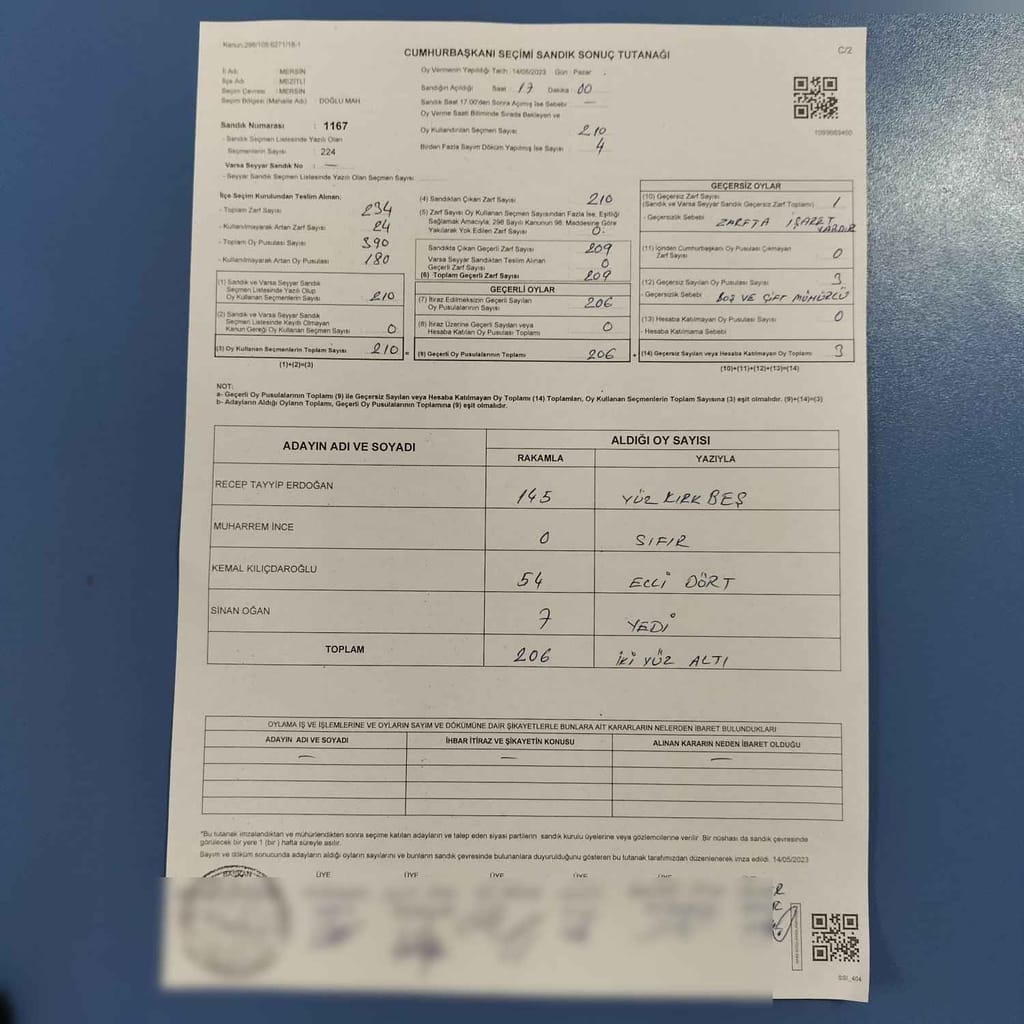 Kanun:298/105 6271/18-1
C/2
CUMHURBAŞKANI SEÇİMİ SANDIK SONUÇ TUTANAĞI
İl Adı : MERSİN
İlçe Adı : MEZİTLİ
Seçim Çevresi : MERSİN
Seçim Bölgesi (Mahalle Adı) : DOĞLU MAH.
Sandık Numarası : 1167
- Sandık Seçmen Listesinde Yazılı Olan
Seçmenlerin Sayısı : 224
Varsa Seyyar Sandık No : —
- Seyyar Sandık Seçmen Listesinde Yazılı Olan Seçmen Sayısı
Oy Vermenin Yapıldığı Tarih : 14/05/2023 Gün : Pazar
Sandığın Açıldığı Saat 17 Dakika 00
Sandık Saat 17.00'den Sonra Açılmış İse Sebebi —
Oy Verme Saati Bitiminde Sırada Bekleyen ve
Oy Kullandırılan Seçmen Sayısı 210
Birden Fazla Sayım Döküm Yapılmış İse Sayısı 4
1099669400
İlçe Seçim Kurulundan Teslim Alınan:
- Toplam Zarf Sayısı 234
- Kullanılmayarak Artan Zarf Sayısı 24
- Toplam Oy Pusulası Sayısı 390
- Kullanılmayarak Artan Oy Pusulası 180
(1) Sandık ve Varsa Seyyar Sandık
Seçmen Listesinde Yazılı Olup
Oy Kullanan Seçmenlerin Sayısı 210
(2) Sandık ve Varsa Seyyar Sandık
Seçmen Listesinde Kayıtlı Olmayan
Kanun Gereği Oy Kullanan Seçmen Sayısı 0
(3) Oy Kullanan Seçmenlerin Toplam Sayısı 210 =
(1)+(2)=(3)
(4) Sandıktan Çıkan Zarf Sayısı 210
(5) Zarf Sayısı Oy Kullanan Seçmen Sayısından Fazla İse, Eşitliği
Sağlamak Amacıyla, 298 Sayılı Kanunun 98. Maddesine Göre
Yakılarak Yok Edilen Zarf Sayısı 0
Sandıkta Çıkan Geçerli Zarf Sayısı 209
Varsa Seyyar Sandıktan Teslim Alınan
Geçerli Zarf Sayısı 0
(6) Toplam Geçerli Zarf Sayısı 209
GEÇERLİ OYLAR
(7) İtiraz Edilmeksizin Geçerli Sayılan
Oy Pusulalarının Sayısı 206
(8) İtiraz Üzerine Geçerli Sayılan veya
Hesaba Katılan Oy Pusulası Toplamı 0
(9) Geçerli Oy Pusulalarının Toplamı 206 +
GEÇERSİZ OYLAR
(10) Geçersiz Zarf Sayısı
(Sandık ve Varsa Seyyar Sandık Geçersiz Zarf Toplamı) 1
- Geçersizlik Sebebi ZARFTA İŞARET
VARDIR
(11) İçinden Cumhurbaşkanı Oy Pusulası Çıkmayan
Zarf Sayısı 0
(12) Geçersiz Sayılan Oy Pusulası Sayısı 3
- Geçersizlik Sebebi BOŞ VE ÇİFT MÜHÜRLÜ
(13) Hesaba Katılmayan Oy Pusulası Sayısı 0
- Hesaba Katılmama Sebebi
(14) Geçersiz Sayılan veya Hesaba Katılmayan Oy Toplamı 3
(10)+(11)+(12)+(13)=(14)
NOT:
a- Geçerli Oy Pusulalarının Toplamı (9) ile Geçersiz Sayılan veya Hesaba Katılmayan Oy Toplamı (14) Toplamları, Oy Kullanan Seçmenlerin Toplam Sayısına (3) eşit olmalıdır. (9)+(14)=(3)
b- Adayların Aldığı Oyların Toplamı, Geçerli Oy Pusulalarının Toplamına (9) eşit olmalıdır.
ADAYIN ADI VE SOYADI
ALDIĞI OY SAYISI
RAKAMLA YAZIYLA
RECEP TAYYİP ERDOĞAN 145 YÜZ KIRK BEŞ
MUHARREM İNCE 0 SIFIR
KEMAL KILIÇDAROĞLU 54 ELLİ DÖRT
SİNAN OĞAN 7 YEDİ
TOPLAM 206 İKİ YÜZ ALTI
OYLAMA İŞ VE İŞLEMLERİNE VE OYLARIN SAYIM VE DÖKÜMÜNE DAİR ŞİKAYETLERLE BUNLARA AİT KARARLARIN NELERDEN İBARET BULUNDUKLARI
ADAYIN ADI VE SOYADI İHBAR İTİRAZ VE ŞİKAYETİN KONUSU ALINAN KARARIN NEDEN İBARET OLDUĞU
— — —
*Bu tutanak imzalandıktan ve mühürlendikten sonra seçime katılan adayların ve talep eden siyasi partilerin sandık kurulu üyelerine veya gözlemcilerine verilir. Bir nüshası da sandık çevresinde
görülecek bir yere 1 (bir) hafta süreyle asılır.
Sayım ve döküm sonucunda adayların aldığı oyların sayılarını ve bunların sandık çevresinde bulunanlara duyurulduğunu gösteren bu tutanak tarafımızdan düzenlenerek imza edildi. 14/05/2023
BAŞKAN ÜYE ÜYE ÜYE ÜYE ÜYE
SSI_404